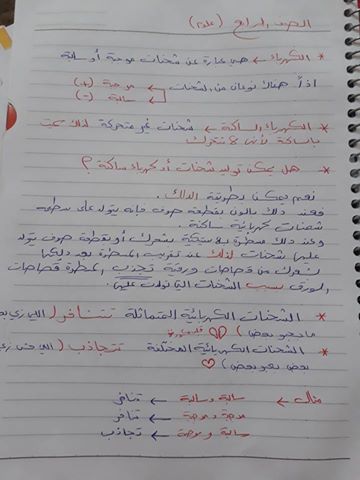 الصف الرابع (علوم)
* الكهرباء ← هي عبارة عن شحنات موجبة أو سالبة
اذاً هناك نوعان من الشحنات ← موجبة (+)
← سالبة (-)
* الكهرباء الساكنة ← شحنات غير متحركة لذلك سميت
بالساكنة لأنها لا تتحرك
* هل يمكن توليد شحنات أو كهرباء ساكنة ؟
نعم يمكن بطريقة الدلك.
فعند دلك بالون بقطعة صوف فإنه يتولد على سطحه
شحنات كهربائية ساكنة.
وعند دلك مسطرة بلاستيكية بشعرك أو بقطعة صوف يتولد
عليها شحنات لذلك عند تقريب المسطرة بعد دلكها
بشعرك من قصاصات ورقية تجذب المسطرة قصاصات
الورق بسبب الشحنات التي تولدت عليها.
* الشحنات الكهربائية المتماثلة تتنافر (اللي زي بعض
ما بحبو بعض)
* الشحنات الكهربائية المختلفة تتجاذب (اللي مش زي
بعض بحبو بعض)
مثال ← سالبة وسالبة ← تنافر
موجبة وموجبة ← تنافر
سالبة وموجبة ← تجاذب